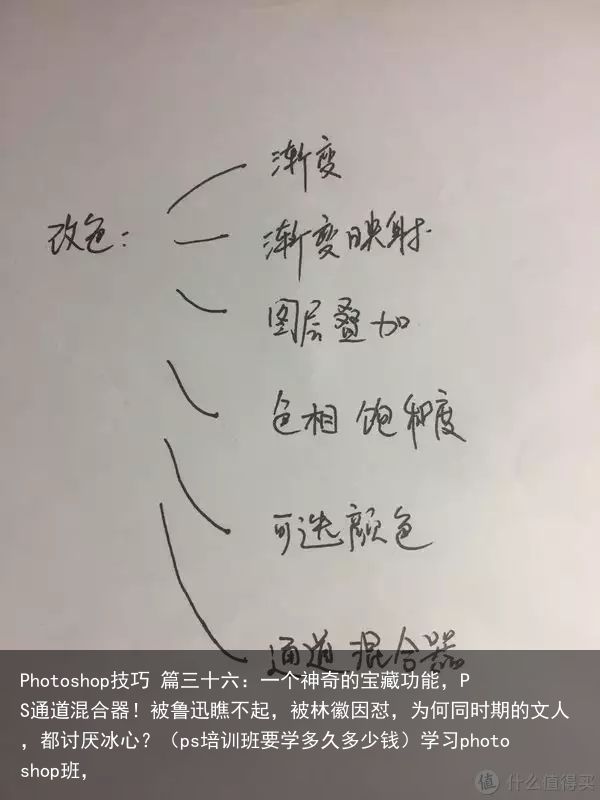 渐变
改色：
渐变映射
图层叠加
色相 饱和度
可选颜色
通道混合器
Photoshop技巧 篇三十六：一个神奇的宝藏功能，P
S通道混合器！被鲁迅瞧不起，被林徽因怼，为何同时期的文人
，都讨厌冰心？（ps培训班要学多久多少钱）学习photo
shop班，
值 什么值得买